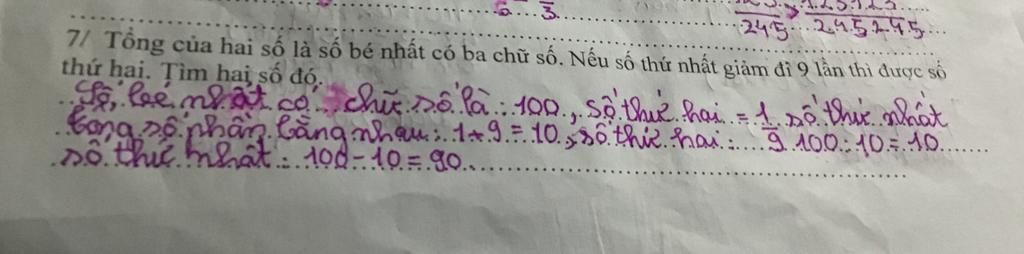 6 3
245 245245
7/ Tổng của hai số là số bé nhất có ba chữ số. Nếu số thứ nhất giảm đi 9 lần thì được số
thứ hai. Tìm hai số đó.
Số bé nhất có 3 chữ số là : 100, số thứ hai = 1/9 số thứ nhất
Tổng số phần bằng nhau : 1+9=10, số thứ hai : 100:10=10
số thứ nhất : 100-10=90